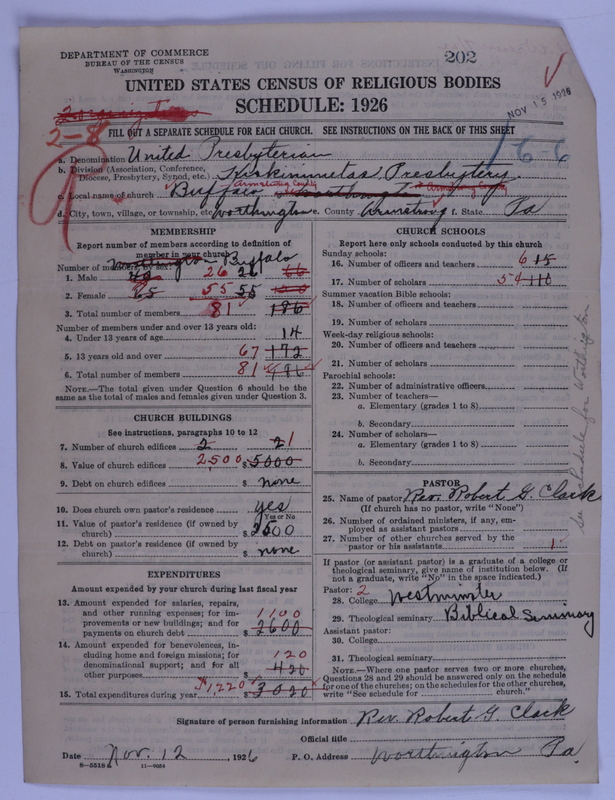 DEPARTMENT OF COMMERCE
BUREAU OF THE CENSUS
WASHINGTON
202
UNITED STATES CENSUS OF RELIGIOUS BODIES
SCHEDULE: 1926
NOV 15 1926
2-8
FILL OUT A SEPARATE SCHEDULE FOR EACH CHURCH. SEE INSTRUCTIONS ON THE BACK OF THIS SHEET
166
a. Denomination United Presbyterian
b. Division (Association, Conference, Diocese, Presbytery, Synod, etc.) Kiskiminetas Presbytery
Armstrong County
c. Local name of church Buffalo Worthington Armstrong County
d. City, town, village, or township, etc. Worthington e. County Armstrong f. State Pa
MEMBERSHIP
Report number of members according to definition of member in your church
Worthington Buffalo
Number of members, by sex:
1. Male 40 26 26 66
2. Female 65 55 55
3. Total number of members 81 186
Number of members under and over 13 years old:
4. Under 13 years of age 14
5. 13 years old and over 67 172
6. Total number of members 81 186
NOTE.—The total given under Question 6 should be the same as the total of males and females given under Question 3.
CHURCH BUILDINGS
See instructions, paragraphs 10 to 12
7. Number of church edifices 2 2 1
8. Value of church edifices 2,500 $ 5000
9. Debt on church edifices $ none
10. Does church own pastor's residence? yes
(Yes or No)
11. Value of pastor's residence (if owned by church) $ 2500
12. Debt on pastor's residence (if owned by church) $ none
EXPENDITURES
Amount expended by your church during last fiscal year
13. Amount expended for salaries, repairs, and other running expenses; for improvements or new buildings; and for payments on church debt 1100 $ 2600
14. Amount expended for benevolences, including home and foreign missions; for denominational support; and for all other purposes 120 $ 420
15. Total expenditures during year $1,220 $ 3020
CHURCH SCHOOLS
Report here only schools conducted by this church
Sunday schools:
16. Number of officers and teachers 6 15
17. Number of scholars 54 110
Summer vacation Bible schools:
18. Number of officers and teachers
19. Number of scholars
Week-day religious schools:
20. Number of officers and teachers
21. Number of scholars
Parochial schools:
22. Number of administrative officers
23. Number of teachers—
a. Elementary (grades 1 to 8)
b. Secondary
24. Number of scholars—
a. Elementary (grades 1 to 8)
b. Secondary
See schedule for Worthington
PASTOR
25. Name of pastor Rev. Robert G. Clark
(If church has no pastor, write "None")
26. Number of ordained ministers, if any, employed as assistant pastors
27. Number of other churches served by the pastor or his assistants 1
If pastor (or assistant pastor) is a graduate of a college or theological seminary, give name of institution below. (If not a graduate, write "No" in the space indicated.)
Pastor: 2
28. College Westminster
29. Theological seminary Biblical Seminary
Assistant pastor:
30. College
31. Theological seminary
NOTE.—Where one pastor serves two or more churches, Questions 28 and 29 should be answered only on the schedule for one of the churches; on the schedules for the other churches, write "See schedule for church."
Signature of person furnishing information Rev. Robert G. Clark
Official title
Date Nov. 12, 1926 P. O. Address Worthington Pa.
8-5518 11-9054